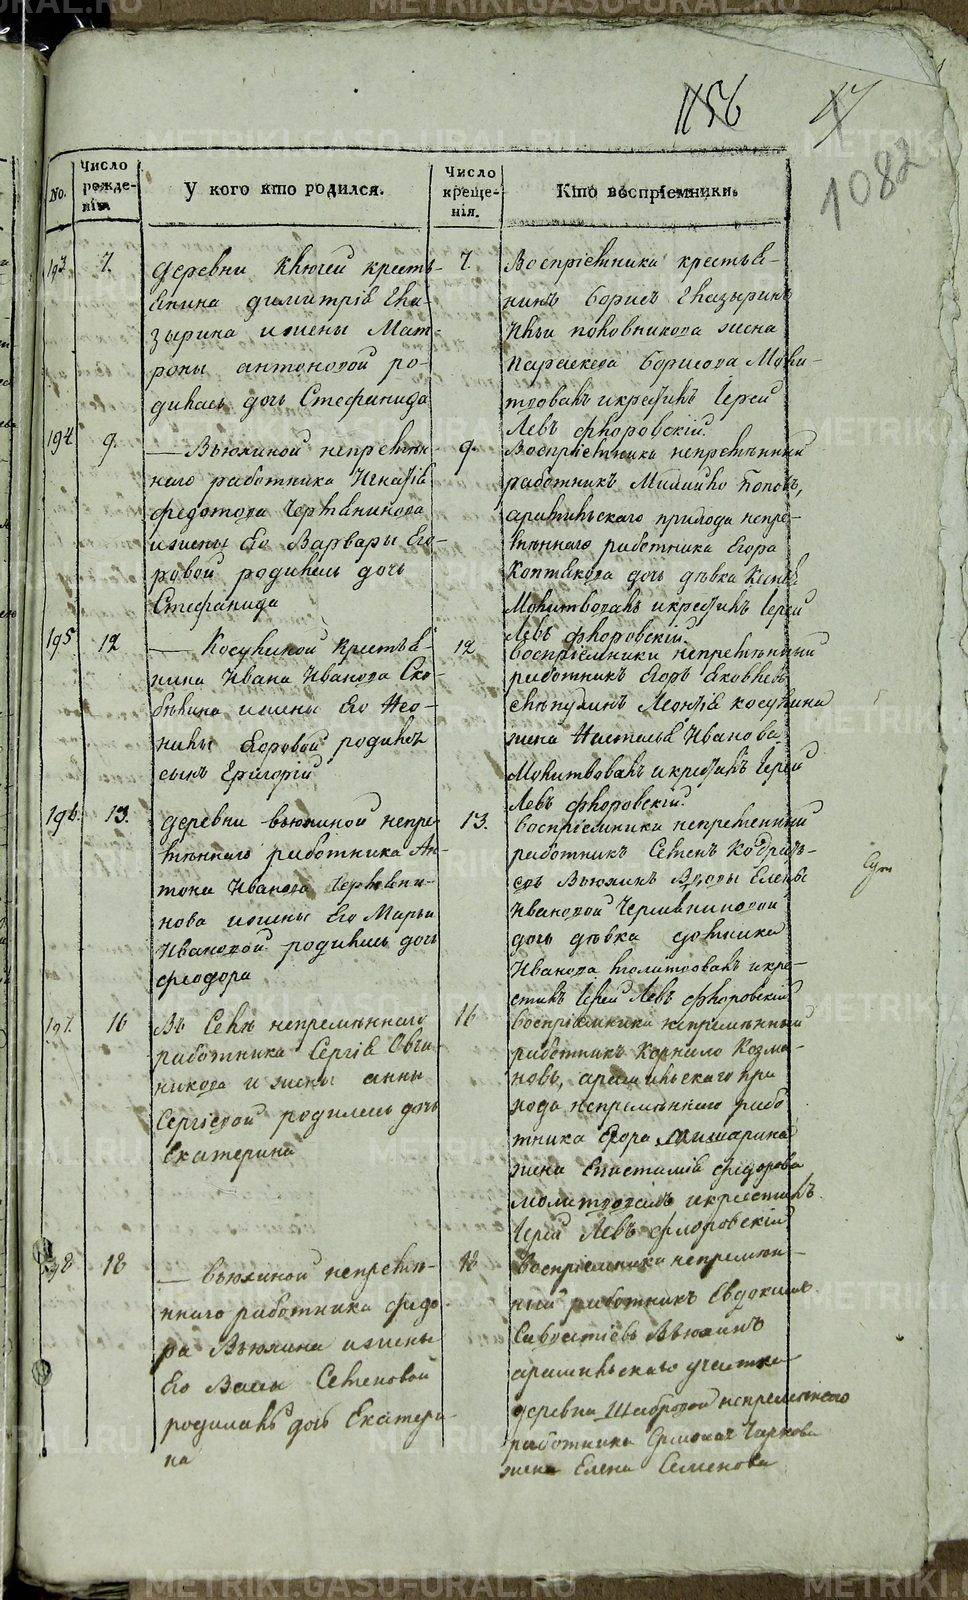 1156
47
1082
No.
Число рожде- нія.
У кого кто родился.
Число креще- нія.
Кто воспріемники.
193
7.
деревни Ключей кресть-
янина Димитрія Ека-
зырина и жены Мат-
роны Антоновой ро-
дилась дочь Стефанида
7.
Воспріемника крестья-
нинъ Борисъ Еказыринъ
жена
Параскева Борисова Моли-
твовалъ и крестилъ Іерей
Левъ Флоровскій.
194
9.
— Вьюхиной непремѣн-
наго работника Игнатія
Федотова
и жены Его Варвары Его-
ровой родилась дочь
Стефанида
9.
Воспріемника непремѣнный
работникъ Михайло Поповъ,
арамильскаго прихода непре-
мѣннаго работника Егора
Коптякова дочь дѣвка
Молитвовалъ и крестилъ Іерей
Левъ Флоровскій.
195
12
— Косулиной Крестья-
нина Ивана Иванова Ско-
бѣлина и жены Его Нео-
нилы Егоровой родился
сынъ Григорій
12
воспріемники непремѣнный
работникъ Егоръ Яковлевъ
Леонтія Косулина
жена Настасья Иванова
Молитвовалъ и крестилъ Іерей
Левъ Флоровскій.
196.
13.
деревни Вьюхиной непре-
мѣннаго работника Ан-
тона Иванова Черемени-
нова и жены Его Марьи
Ивановой родилась дочь
Феодора
13.
воспріемники непременный
работникъ Семенъ Кодрать-
евъ Вьюхинъ Вдовы Елены
Ивановой
дочь дѣвка
Иванова молитвовалъ и кре-
стилъ Іерей Левъ Флоровскій
197.
16
Въ Селѣ непремѣннаго
работника Сергія Овчи-
никова и жены Анны
Сергіевой родилась дочь
Екатерина
16
воспріемники непремѣнный
работникъ Корнило Козма-
новъ, арамильскаго при
хода непремѣннаго рабо
тника Егора Мишарина
жена Епистимія Федорова
молитвовалъ и крестилъ
Іерей Левъ Флоровскій
198
18
— Вьюхиной непремѣ-
ннаго работника Федо-
ра Вьюхина и жены
Его Васы Семеновой
родилась дочь Екатери-
на
18
Воспріемники непремѣн-
ный работникъ Евдокимъ
Савватіевъ Вьюхинъ
арамильскаго участка
деревни Шабровой непремѣннаго
работника Чаркова
жена Елена Семенова